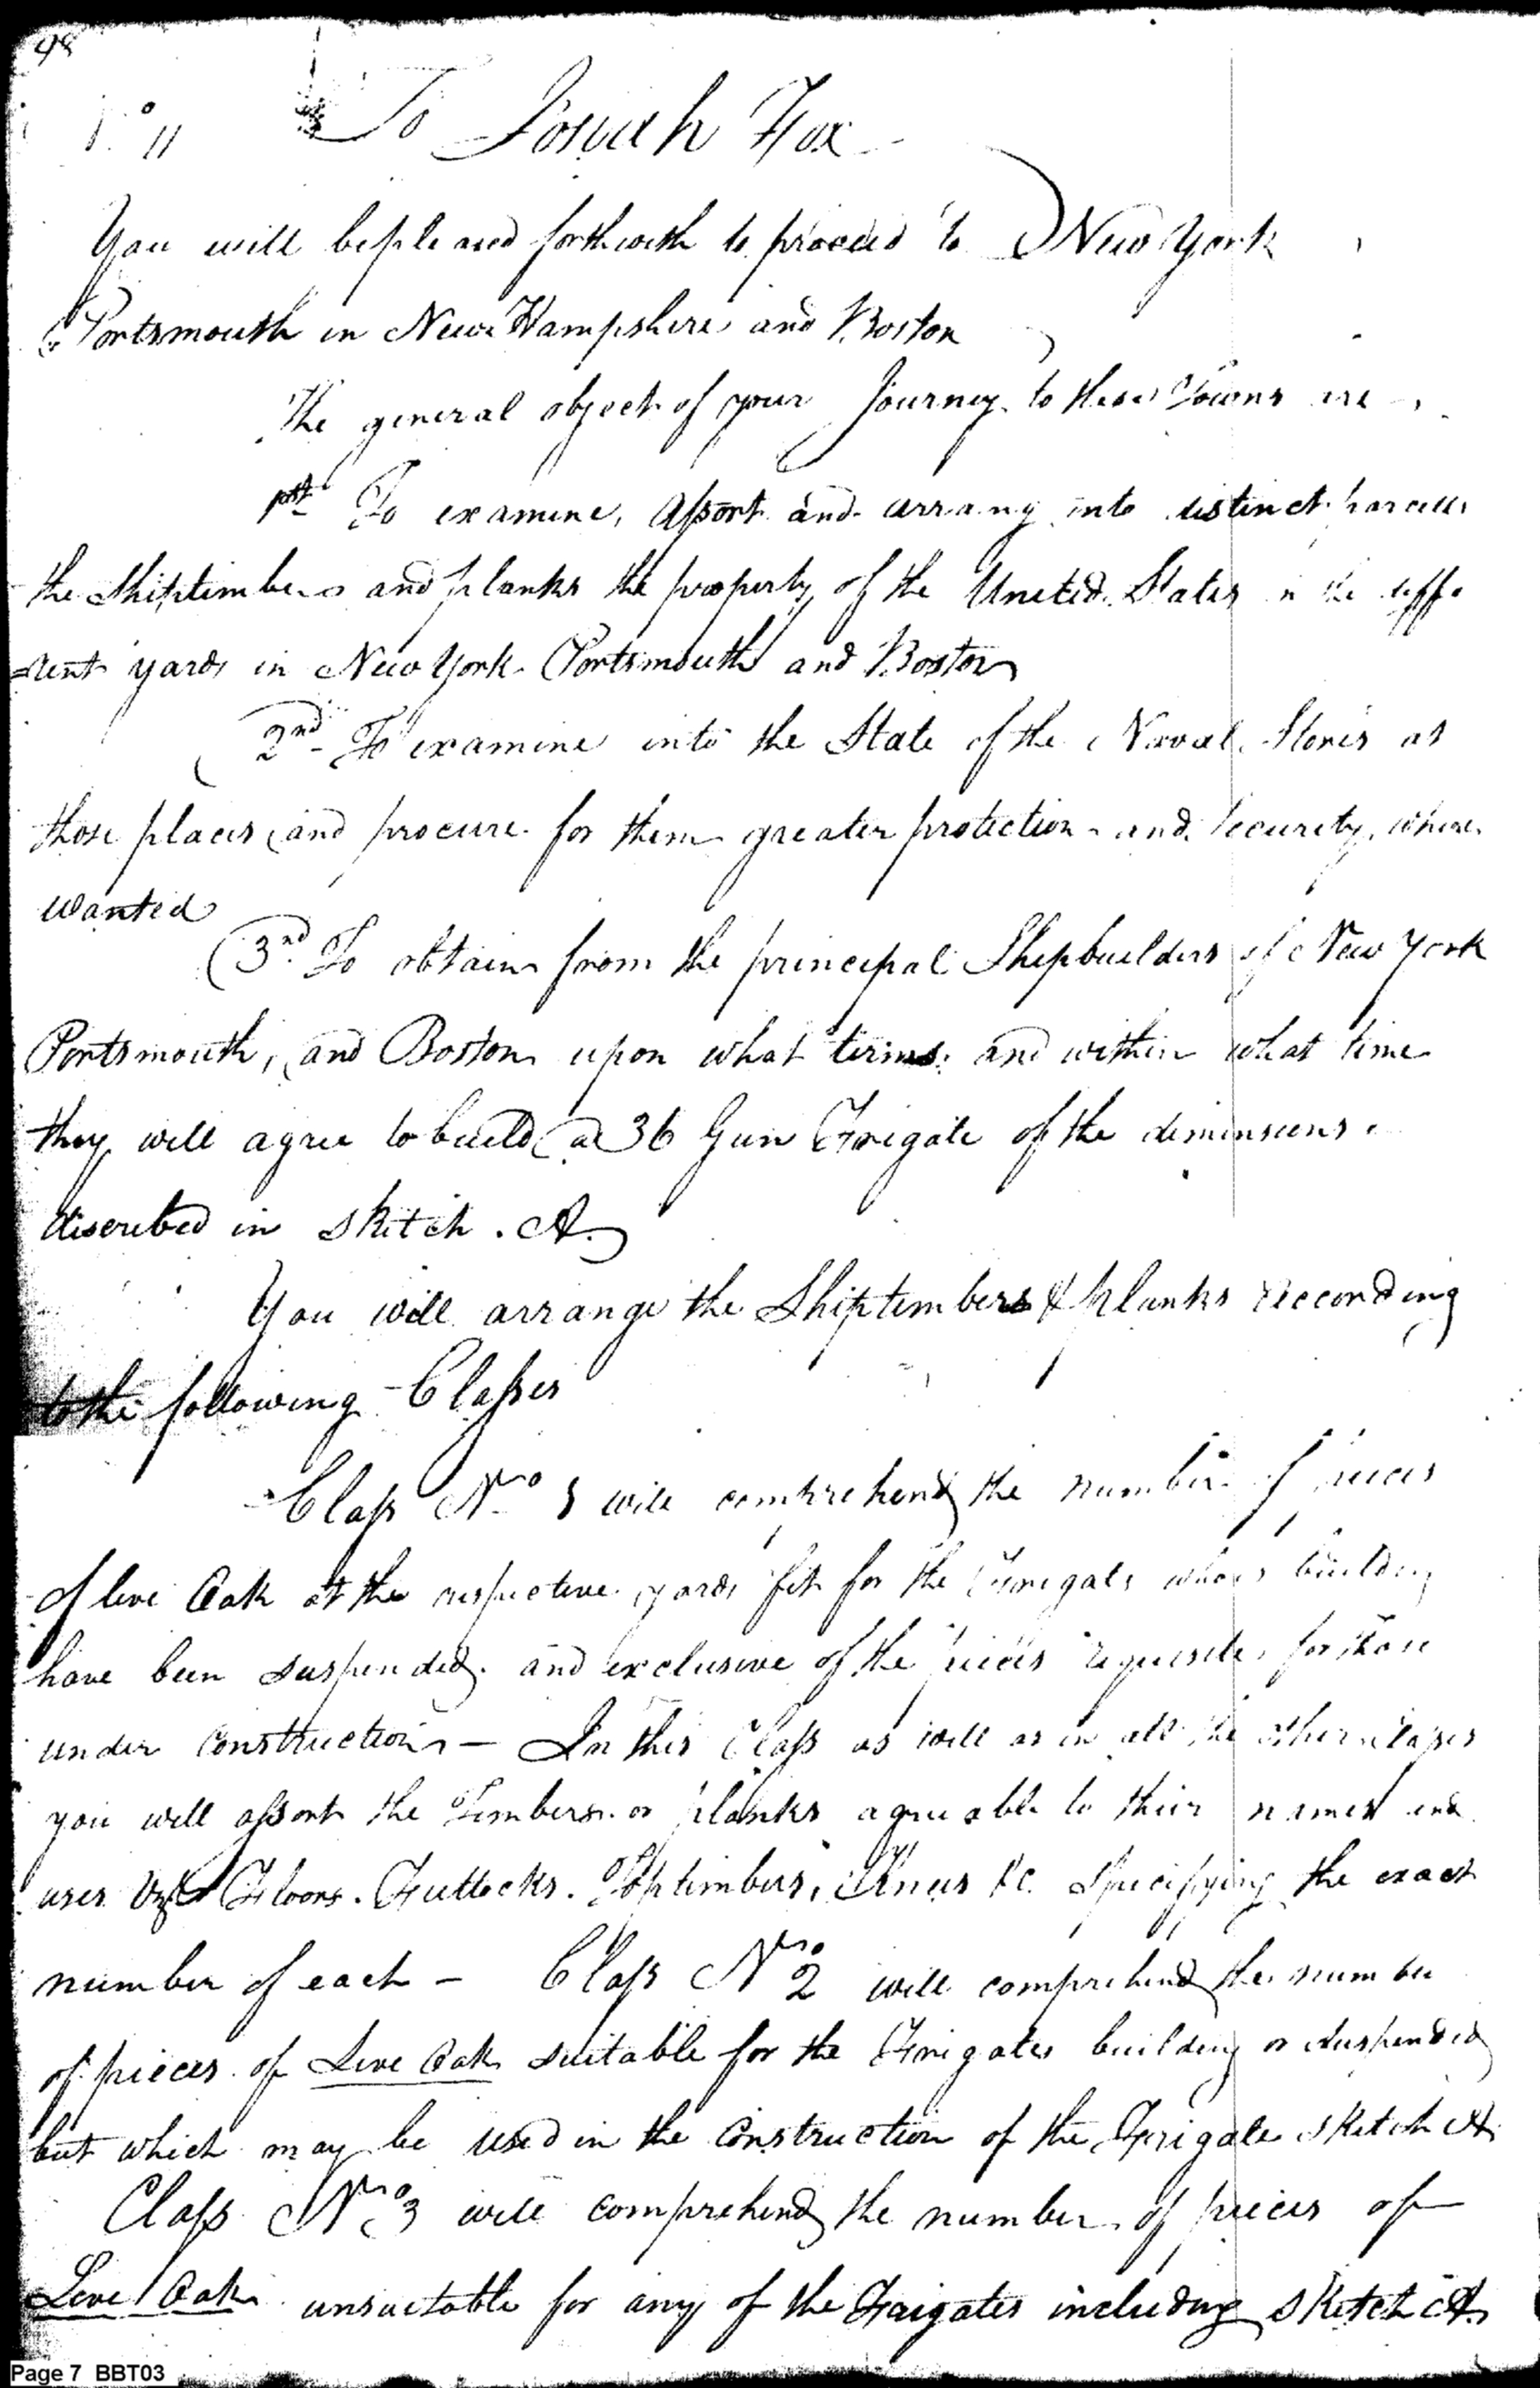 98
No 11 To Josiah Fox
You will be pleased forthwith to proceed to New York
Portsmouth in New Hampshire and Boston
The general object of your Journey to these Towns are
1st To examine, assort and arrang into distinct parcells
the Shiptimbers and planks the property of the United States in the diffe
=rent yards in New York Portsmouth and Boston
2nd To examine into the State of the Naval Stores at
those places and procure for them greater protection and Security, where
wanted
3nd To obtain from the principal Shipbuilders of New York
Portsmouth, and Boston upon what terms and within what time
they will agree to build a 36 Gun Frigate of the dimensions
discribed in sketch. A.
You will arrange the Shiptimbers & planks according
to the following Classes
Class No 1 will comprehend the number of pieces
of live Oak at the respective yards fit for the Frigats whoes building
have been suspended. and exclusive of the pieces requisite for those
under construction – In this Class as well as in all the other classes
you will assort the Timbers or planks agreeable to their names and
uses Viz Floors. Futtocks. Toptimbers, Knees &c. Specifying the exact
number of each – Class No 2 will comprehend the number
of pieces of Live Oak suitable for the Frigates building or suspended
but which may be used in the construction of the Frigate sketch A.
Class No 3 will comprehend the number of pieces of
Live Oak unsuitable for any of the Frigates including sketch A.
Page 7 BBT03